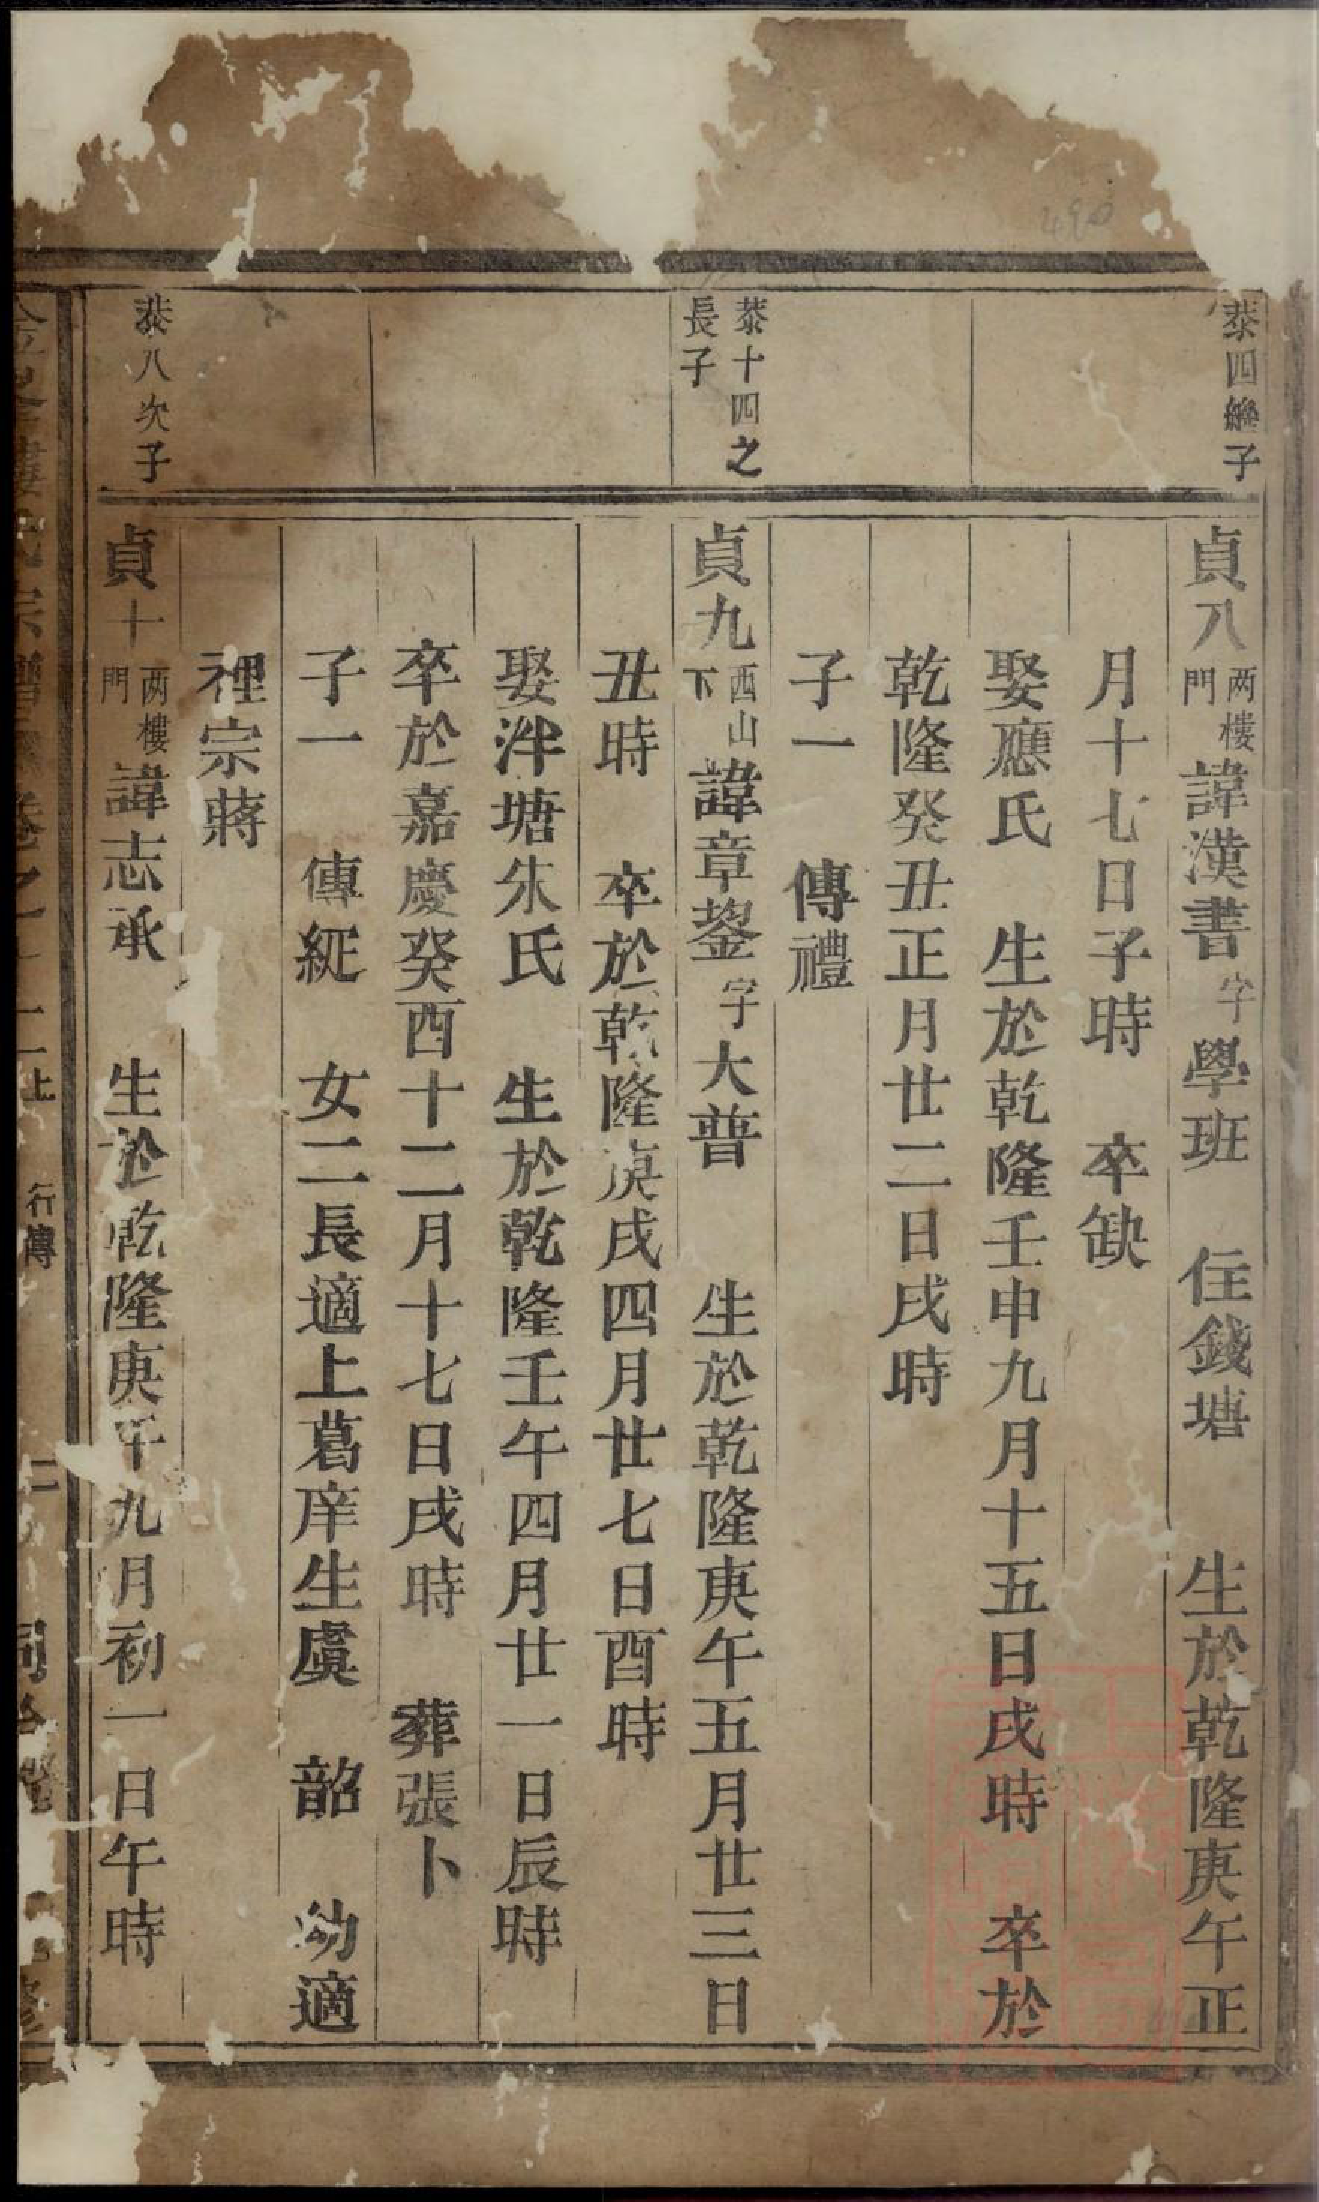 泰四繼子
貞八兩樓門諱漢書字學班 住錢塘 生於乾隆庚午正
月十七日子時 卒缺
娶應氏 生於乾隆壬申九月十五日戌時 卒於
乾隆癸丑正月廿二日戌時
子一 傳禮
泰十四之
長子
貞九西山下諱章鋆字大普 生於乾隆庚午五月廿三日
丑時 卒於乾隆庚戌四月廿七日酉時
娶泮塘朱氏 生於乾隆壬午四月廿一日辰時
卒於嘉慶癸酉十二月十七日戌時 葬張卜
子一 傳綎 女二長適上葛庠生虞 韶 幼適
裡宗蔣
泰八次子
貞十兩樓門諱志承 生於乾隆庚午九月初一日午時
樓氏宗譜 卷之 上 行傳 二
490